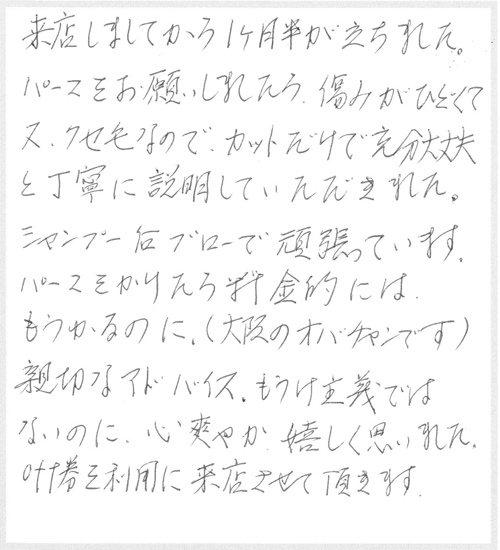 来店しましてから1ヶ月半が立ちました。
パースをお願いしましたら、傷みがひどくて
又、クセ毛なので、カットだけで充分大丈夫
と丁寧に説明していただきました。
シャンプー后ブローで頑張っています。
パースをかけたら料金的には
もうかるのに、(大阪のオバチャンです)
親切なアドバイス。もうけ主義では
ないのに、心爽やか、嬉しく思いました。
券を利用に来店させて頂きます。